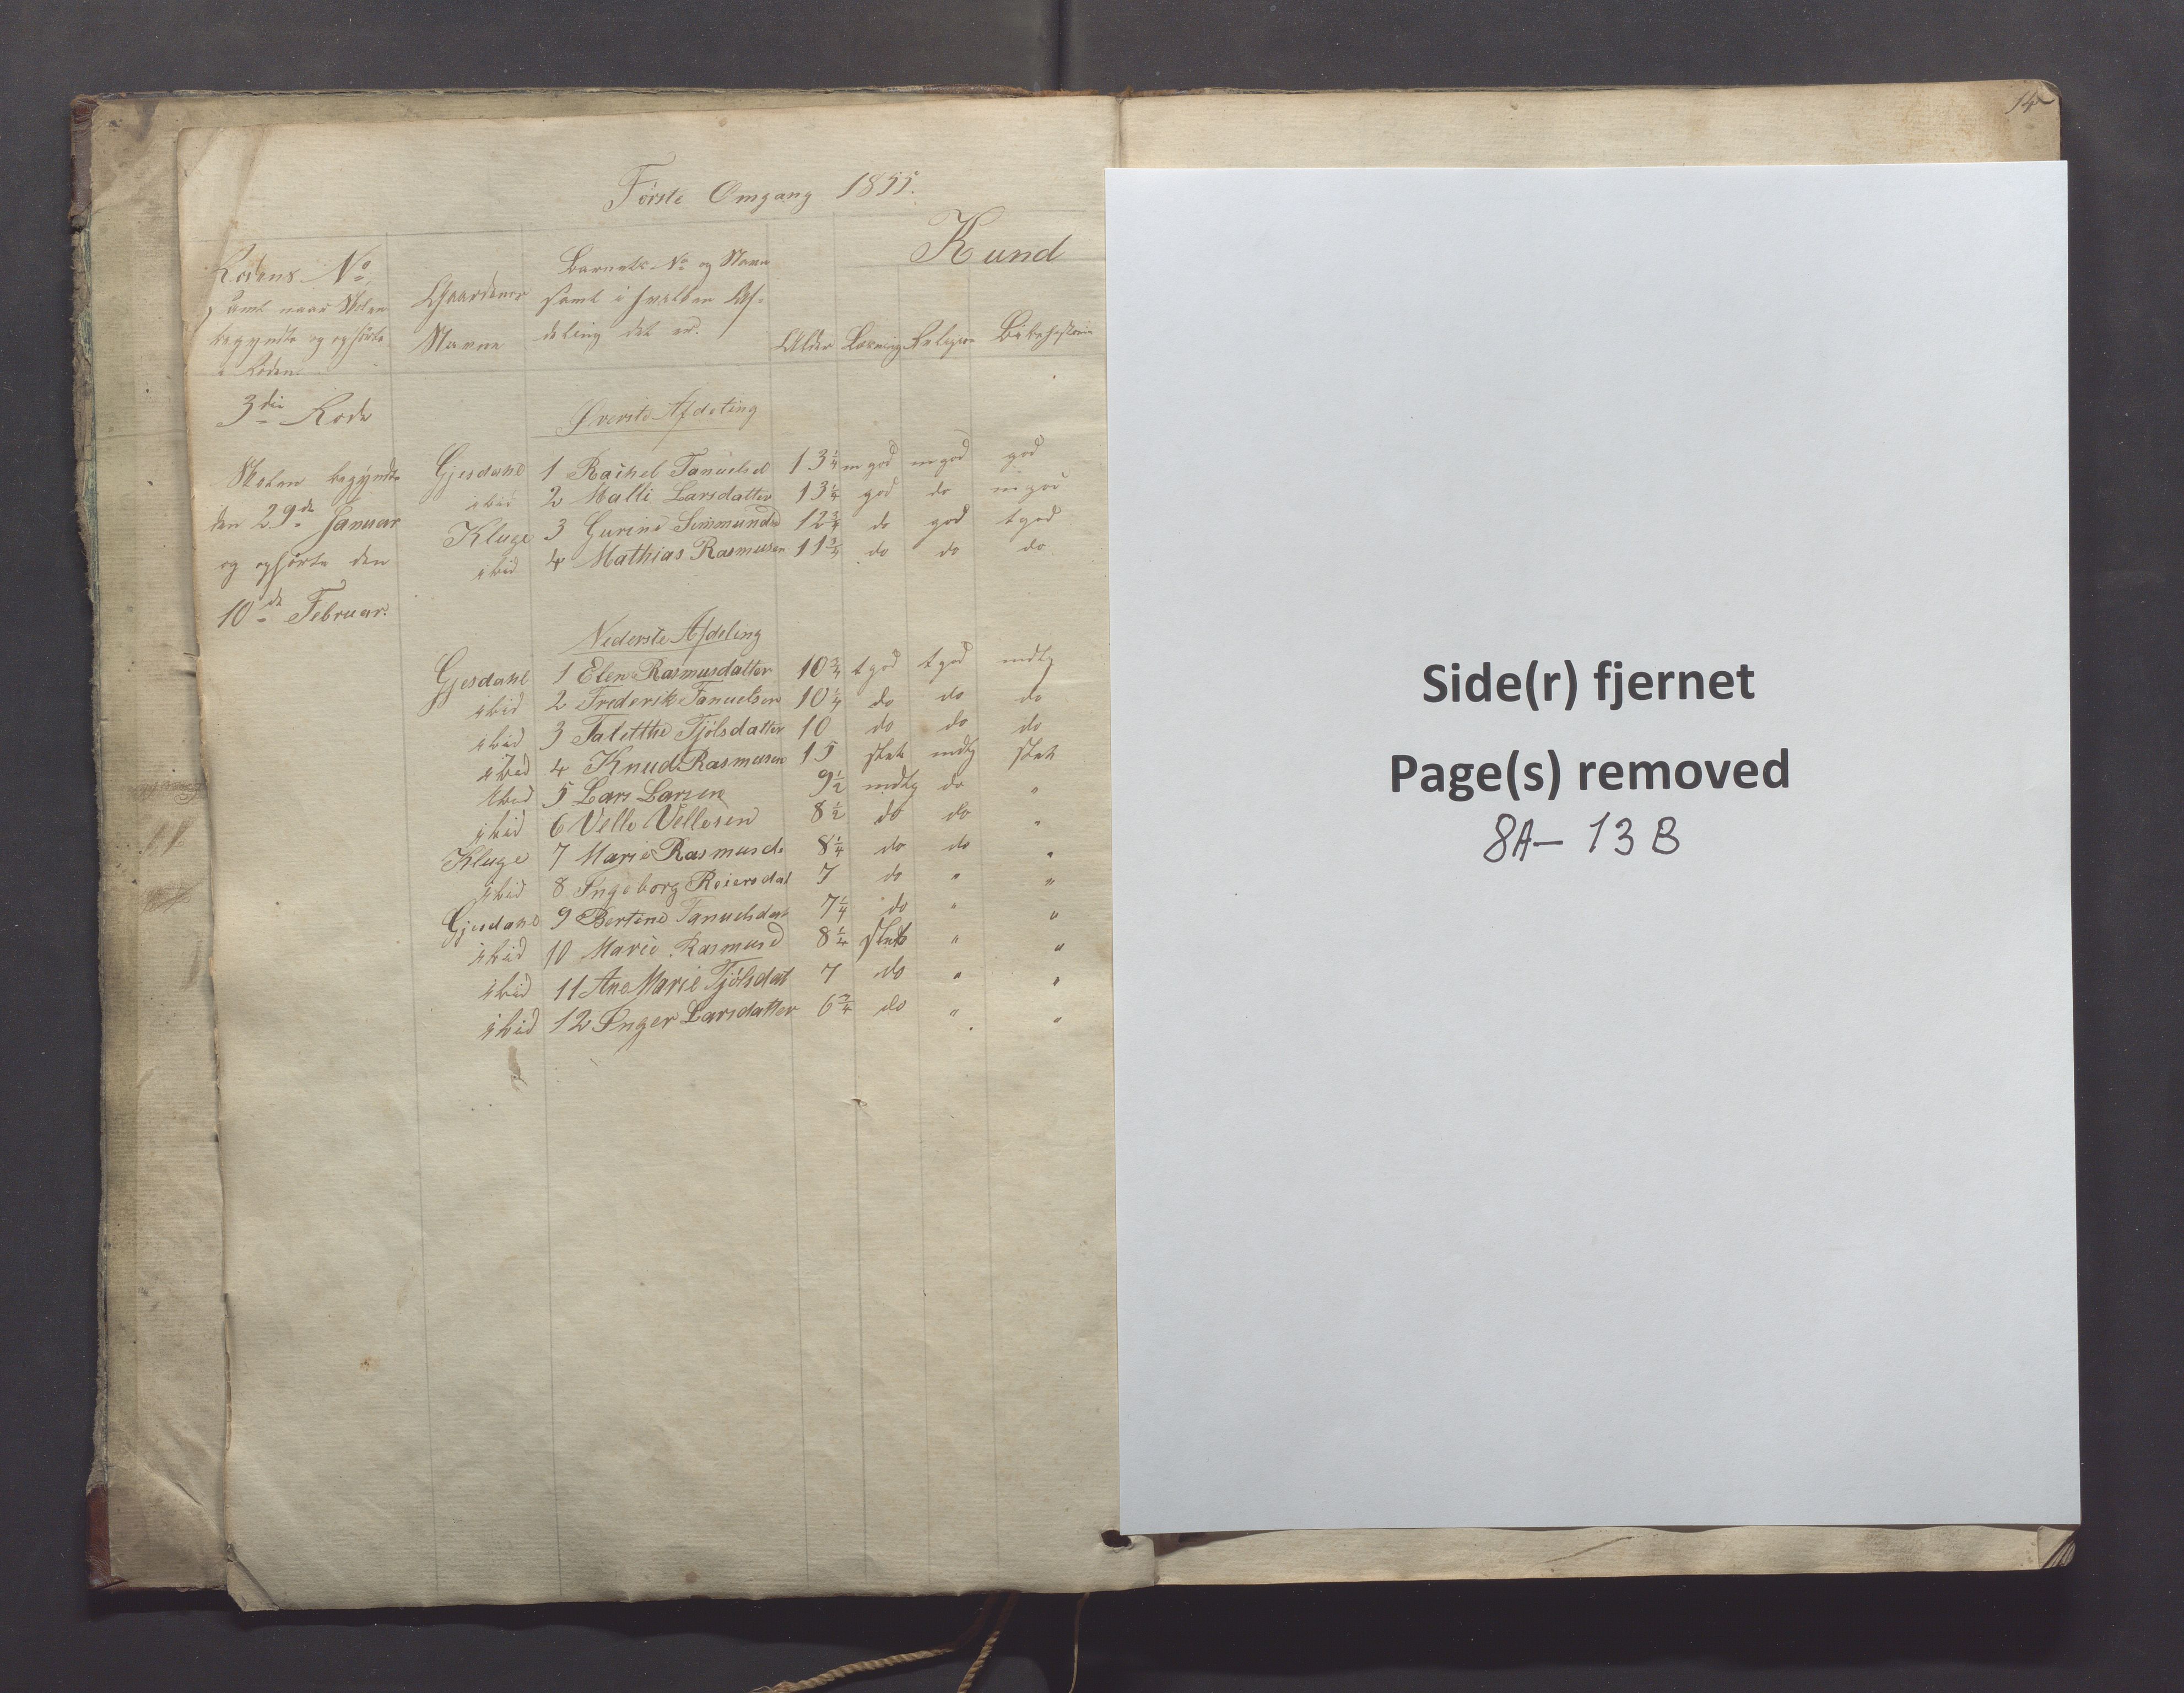 Første Omgang 1855.
Kund
Rodens No samt naar Skolen begyndte og ophørte i Roden.
Gaardenes Navne
Barnets No og Navn samt i hvilken Afdeling det er.
Alder
Læsning
Religion
Bibelhistorie
3die Rode
Øverste Afdeling
Skolen begyndte
den 29de Januar
og ophørte den
10de Februar.
Gjesdahl 1 Rachel Tanuelsd 13 1/4 mgod mgod god
ibid 2 Malli Larsdatter 13 1/4 god do mgod
Kluge 3 Gurine Simmunds 12 3/4 do god tgod
ibid 4 Mathias Rasmusen 11 3/4 do do do
Nederste Afdeling
Gjesdahl 1 Elen Rasmusdatter 10 3/4 tgod tgod mdtg
ibid 2 Frederik Tanuelsen 10 1/4 do do do
ibid 3 Taletthe Tjølsdatter 10 do do do
ibid 4 Knud Rasmusen 15 slet mdtg slet
ibid 5 Lars Larsen 9 1/2 mdtg do "
ibid 6 Velle Vellesen 8 1/2 do do "
Kluge 7 Marie Rasmusd. 8 1/4 do do "
ibid 8 Ingeborg Reiersdat 7 do " "
Gjesdahl 9 Bertine Tanuelsdat 7 1/4 do " "
ibid 10 Marie Rasmusd 8 1/4 slet " "
ibid 11 Ane Marie Tjølsdat 7 do " "
ibid 12 Inger Larsdatter 6 3/4 do " "
14
Side(r) fjernet
Page(s) removed
8A – 13B